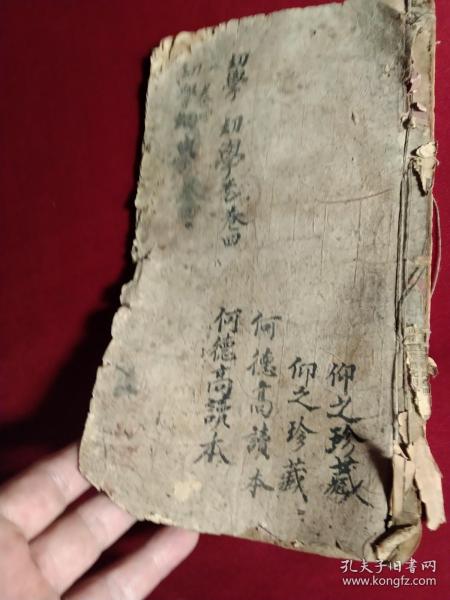 仰之珍藏
仰之珍藏
何德高讀本
何德高讀本
幼學 幼學 卷四
幼學
孔夫子旧书网
www.kongfz.com